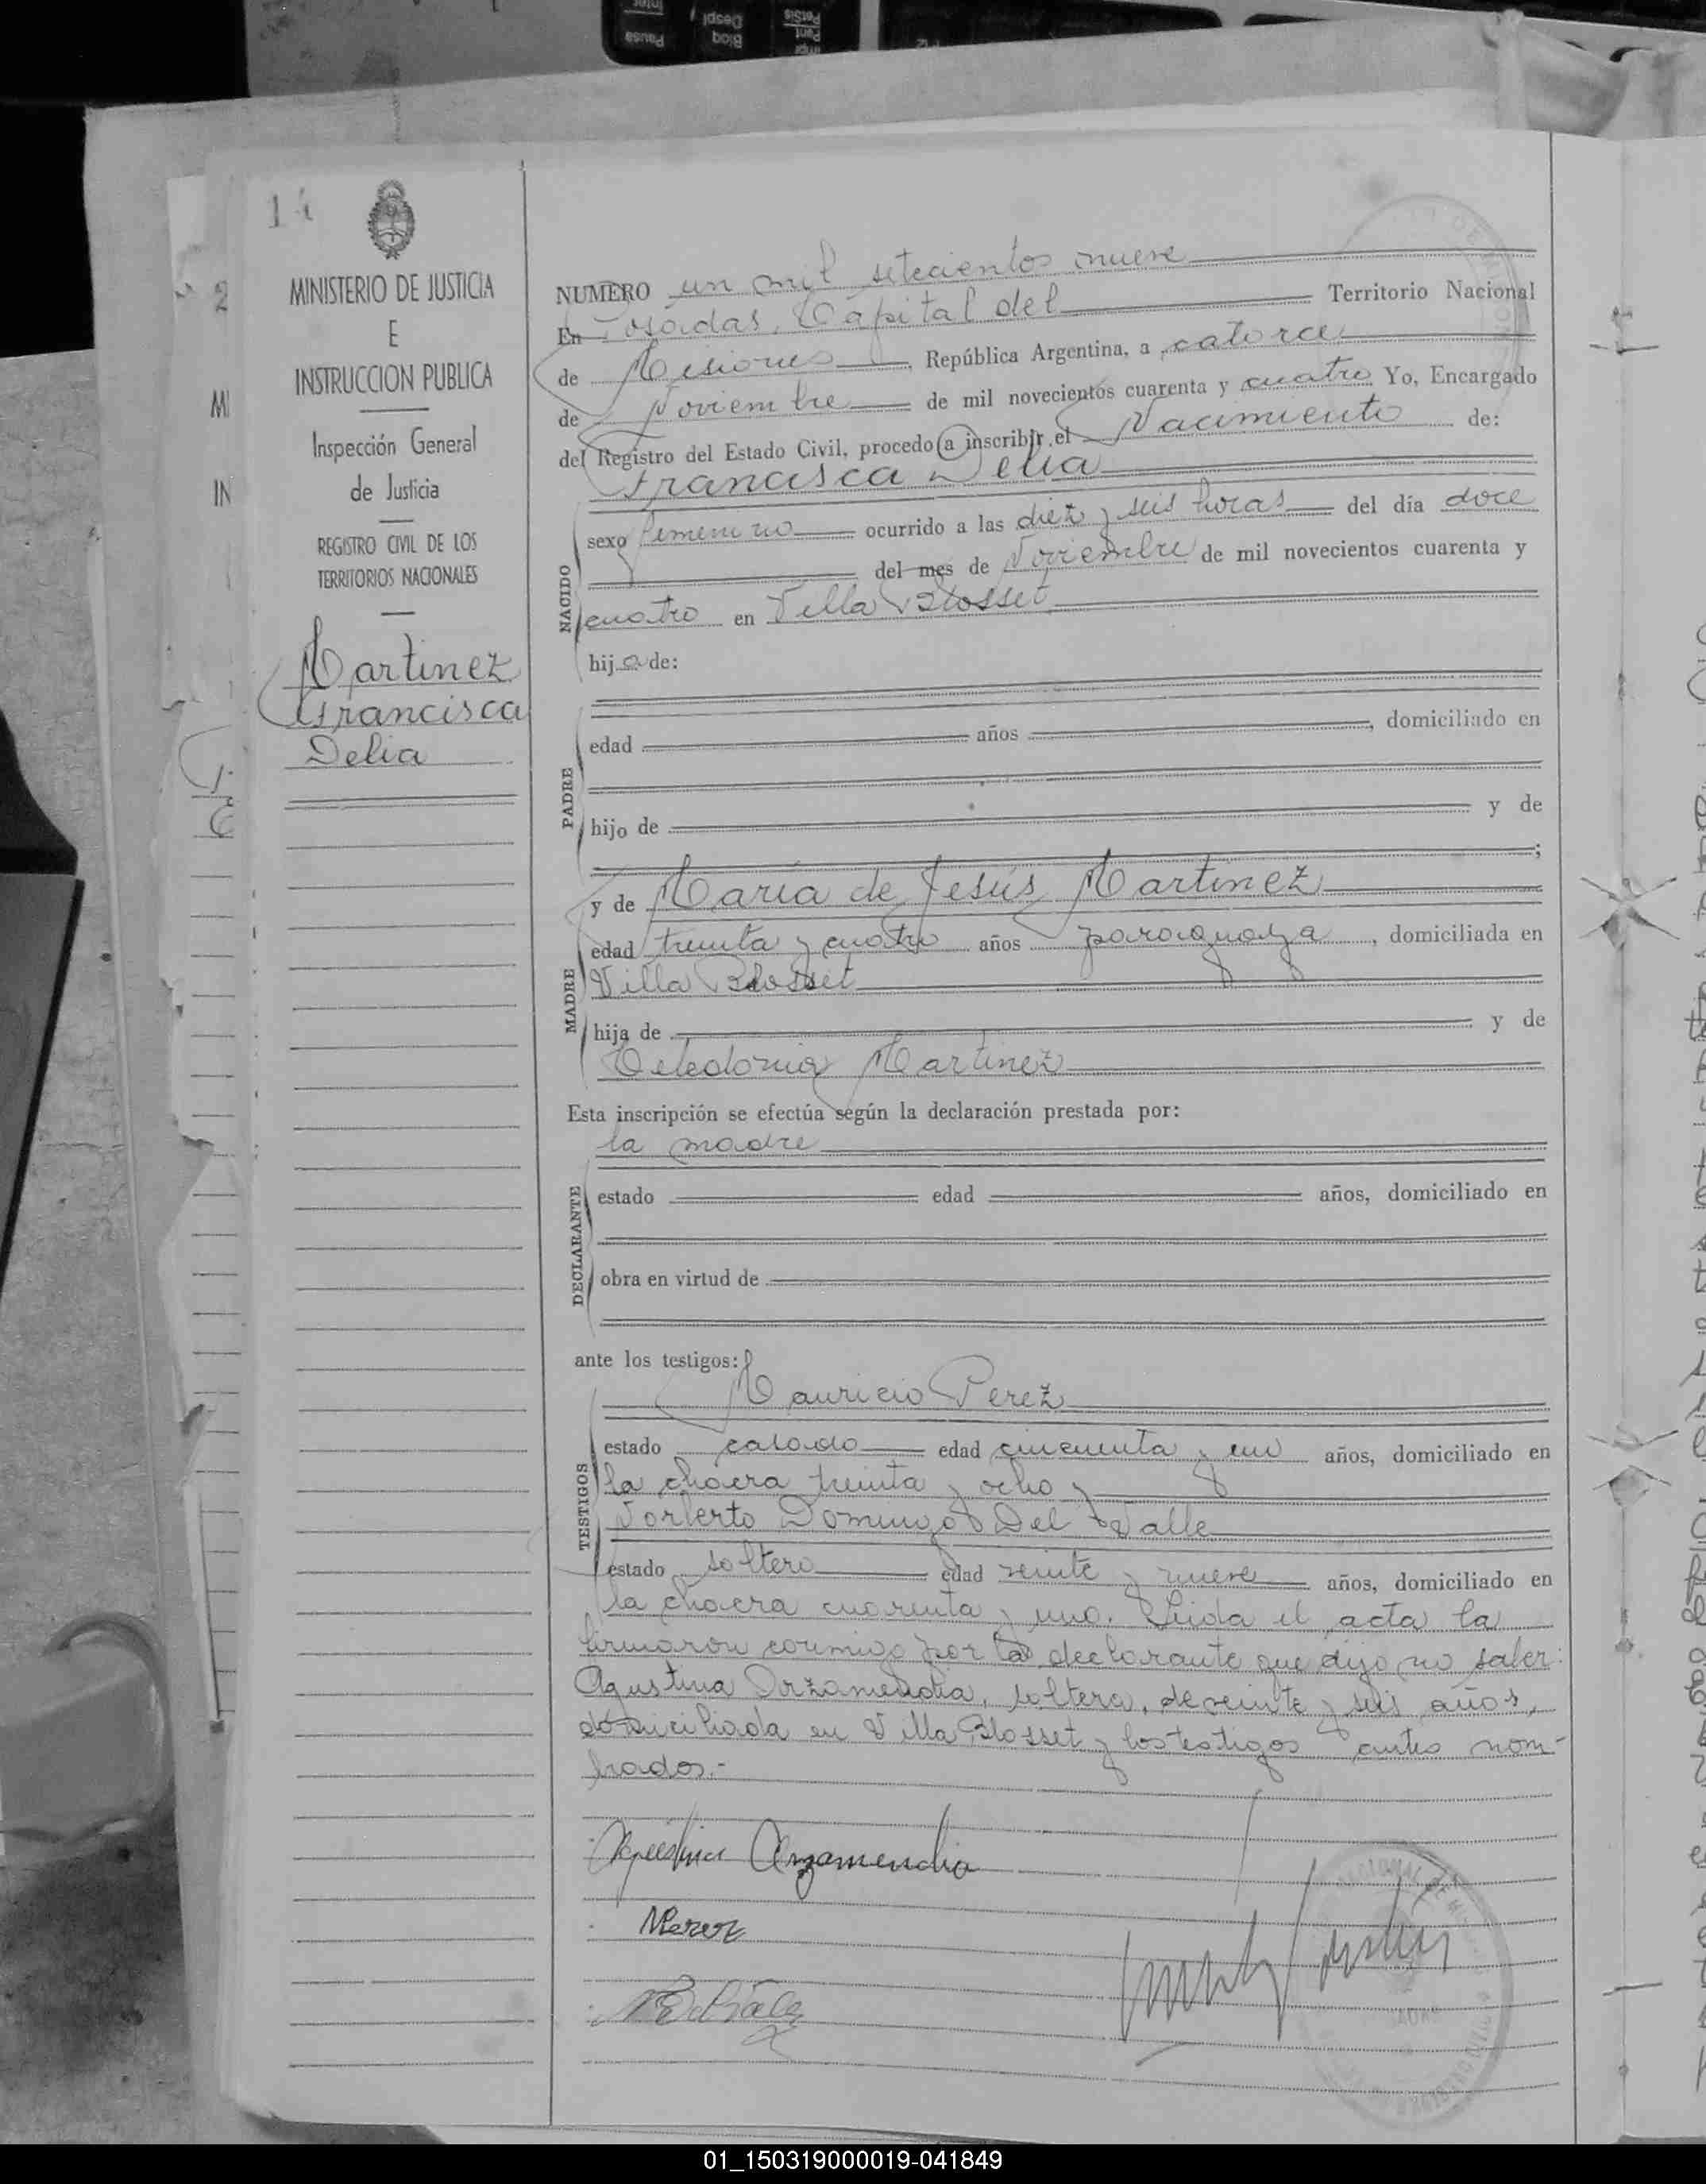 MINISTERIO DE JUSTICIA
E
INSTRUCCION PUBLICA
Inspección General
de Justicia
REGISTRO CIVIL DE LOS
TERRITORIOS NACIONALES
Martinez
Francisca
Delia
NUMERO un mil setecientos nueve
En Posadas, Capital del Territorio Nacional
de Misiones, República Argentina, a catorce
de Noviembre de mil novecientos cuarenta y cuatro Yo, Encargado
del Registro del Estado Civil, procedo a inscribir el Nacimiento de:
Francisca Delia
NACIDO
sexo femenino ocurrido a las diez y seis horas del día doce
del mes de Noviembre de mil novecientos cuarenta y
cuatro en Villa Blosset
hija de:
PADRE
edad años, domiciliado en
hijo de y de
;
MADRE
y de María de Jesús Martinez
edad treinta y cuatro años paraguaya, domiciliada en
Villa Blosset
hija de y de
Celedonia Martinez
Esta inscripción se efectúa según la declaración prestada por:
la madre
DECLARANTE
estado edad años, domiciliado en
obra en virtud de
ante los testigos:
Mauricio Perez
TESTIGOS
estado casado edad cincuenta y uno años, domiciliado en
la chacra treinta y ocho y
Norberto Domingo Del Valle
estado soltero edad veinte y nueve años, domiciliado en
la chacra cuarenta y uno. Leida el acta la
firmaron conmigo por la declarante que dijo no saber:
Agustina Arzamendia, soltera, de veinte y seis años,
domiciliada en Villa Blosset y los testigos antes nom-
brados.-
Agustina Arzamendia
MPerez
01_150319000019-041849